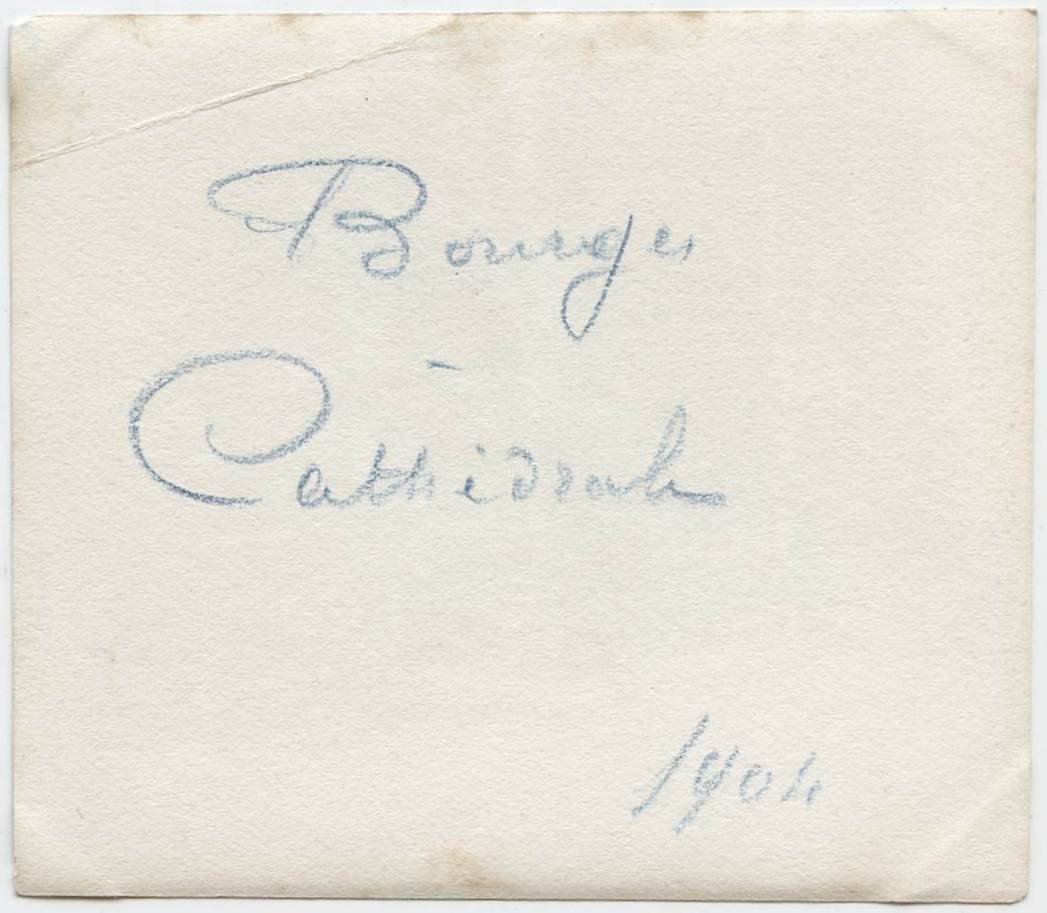 Bourges
Cathédrale
1904